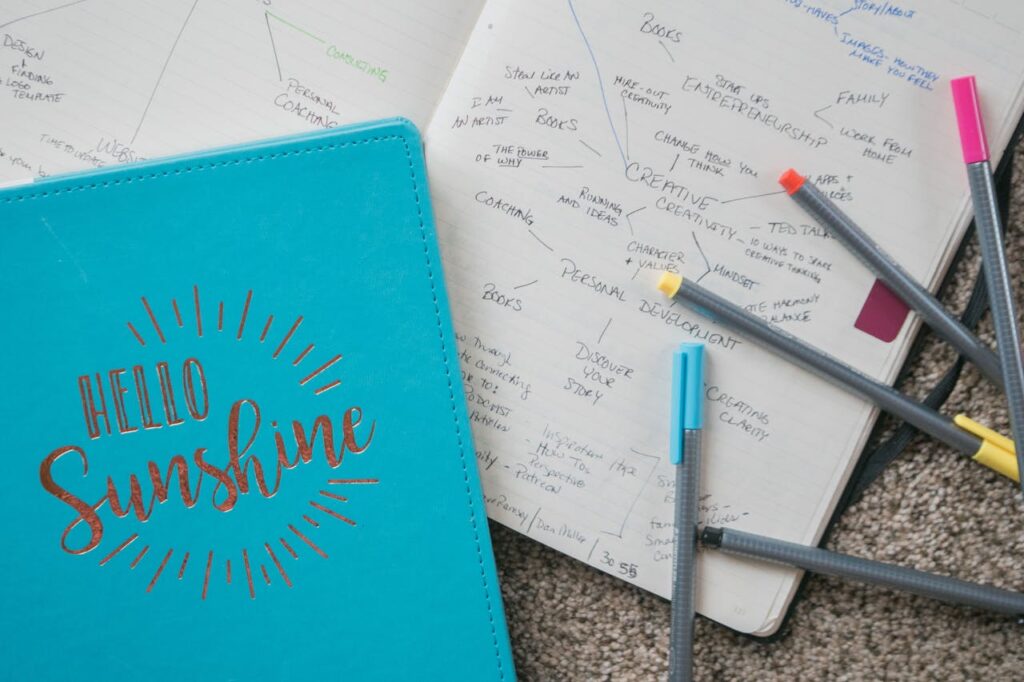 DESIGN
+
FINDING
LOGO
TEMPLATE
CONSULTING
PERSONAL
COACHING
TIME TO UPDATE
WEBSITE
HELLO
Sunshine
STORY/ABOUT
IMAGES - HOW THEY
MAKE YOU FEEL
BOOKS
STEAL LIKE AN
ARTIST
I AM
AN ARTIST
BOOKS
HIRE-OUT
CREATIVITY
START UPS
ENTREPRENEURSHIP
FAMILY
WORK FROM
HOME
THE POWER
OF WHY
CHANGE HOW YOU
THINK
CREATIVE
CREATIVITY
APPS +
RUNNING
AND IDEAS
COACHING
TED TALKS
10 WAYS TO SPARK
CREATIVE THINKING
CHARACTER
+ VALUES
MINDSET
HARMONY
BALANCE
PERSONAL DEVELOPMENT
BOOKS
DISCOVER
YOUR
STORY
CREATING
CLARITY
Through
connecting
TO:
PODCAST
Inspiration
How To:
Perspective
Patreon
Ramsey/Dan Miller/30